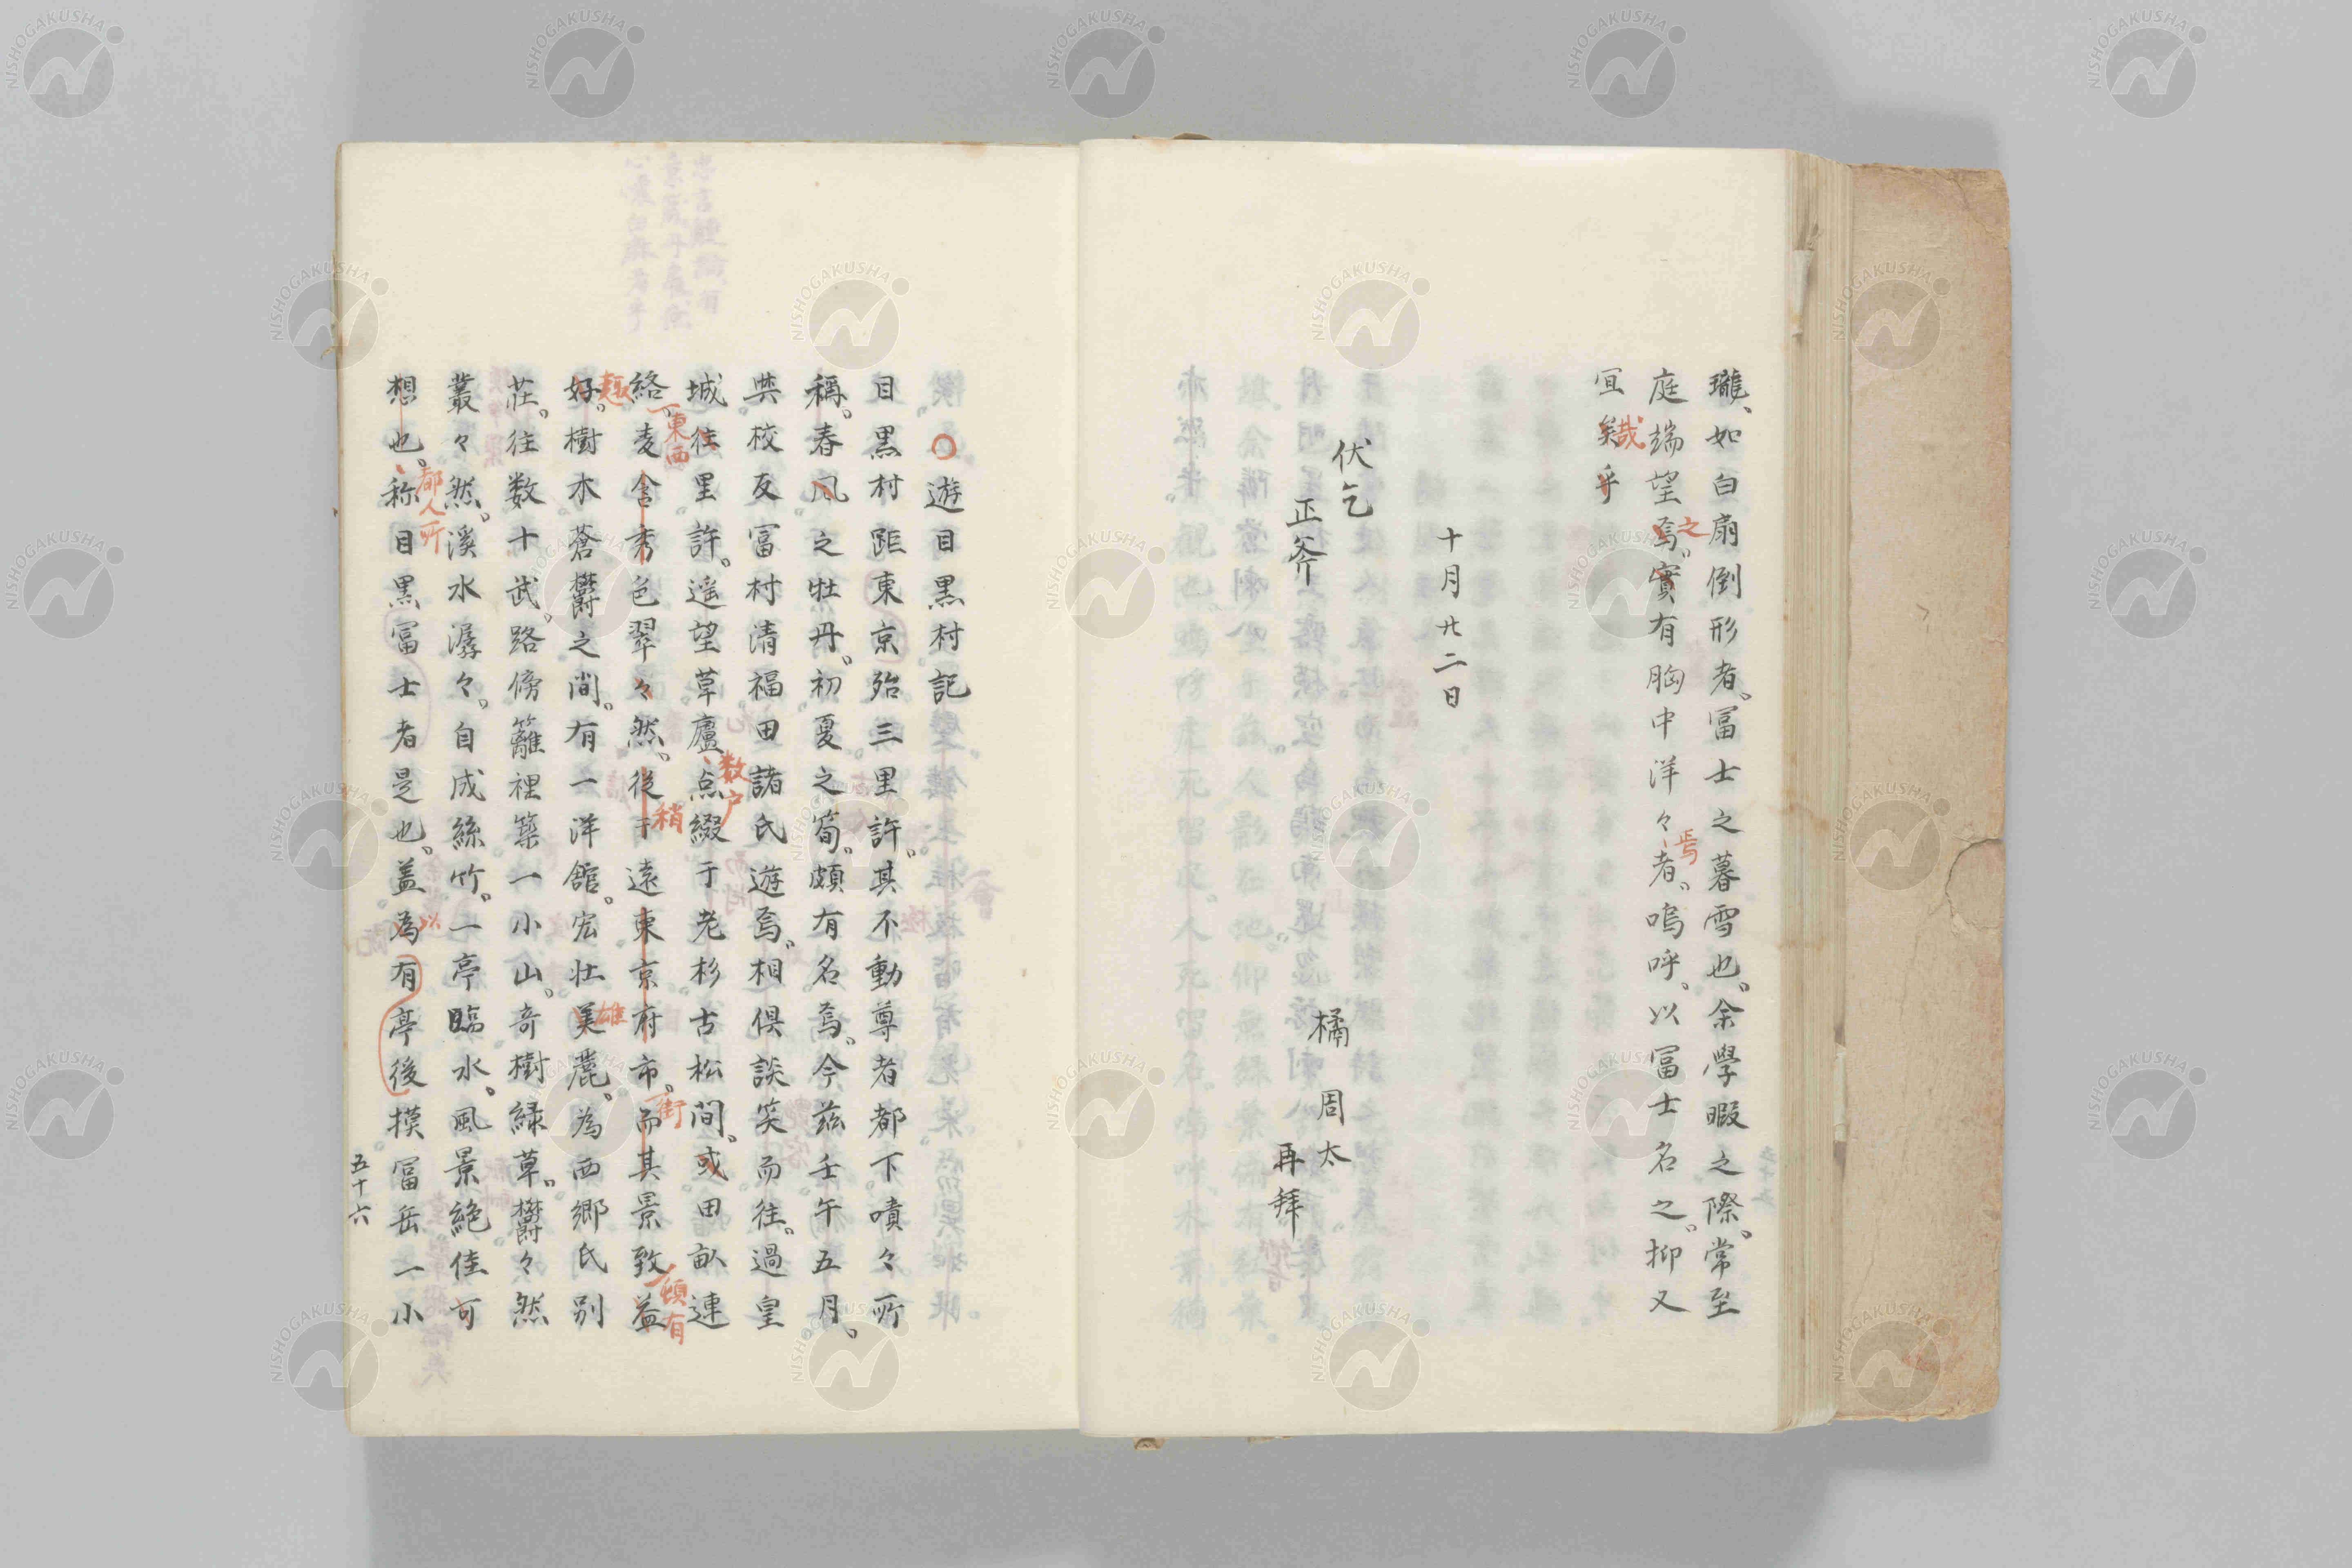 瓏、如白扇倒形者。冨士之暮雪也。余學暇之際。常至
庭端望焉。實有胸中洋々者。嗚呼。以冨士名之。抑又
之
焉
宜矣乎
哉
十月廿二日
伏乞
正斧
橘周太
再拜
○遊目黒村記
目黒村距東京殆三里許。其不動尊者都下嘖々所
稱。春風之牡丹。初夏之筍。頗有名焉。今茲壬午五月。
与校友冨村清福田諸氏遊焉。相倶談笑而往。過皇
城往里許。遥望草廬点綴于老杉古松間。或田畝連
東西
数戸
絡。麦含秀色翠々然。従于遠東京府市。而其景致益
稍
街
頓有
好。樹木蒼欝之間。有一洋舘。宏壮美麗。為西郷氏別
趣
雄
荘。往数十武。路傍籬裡築一小山。奇樹緑草。欝々然
叢々然。溪水潺々。自成絲竹。一亭臨水。風景絶佳可
想也。称目黒冨士者是也。盖為有亭後摸冨岳一小
都人所
以
五十六
NISHOGAKUSHA